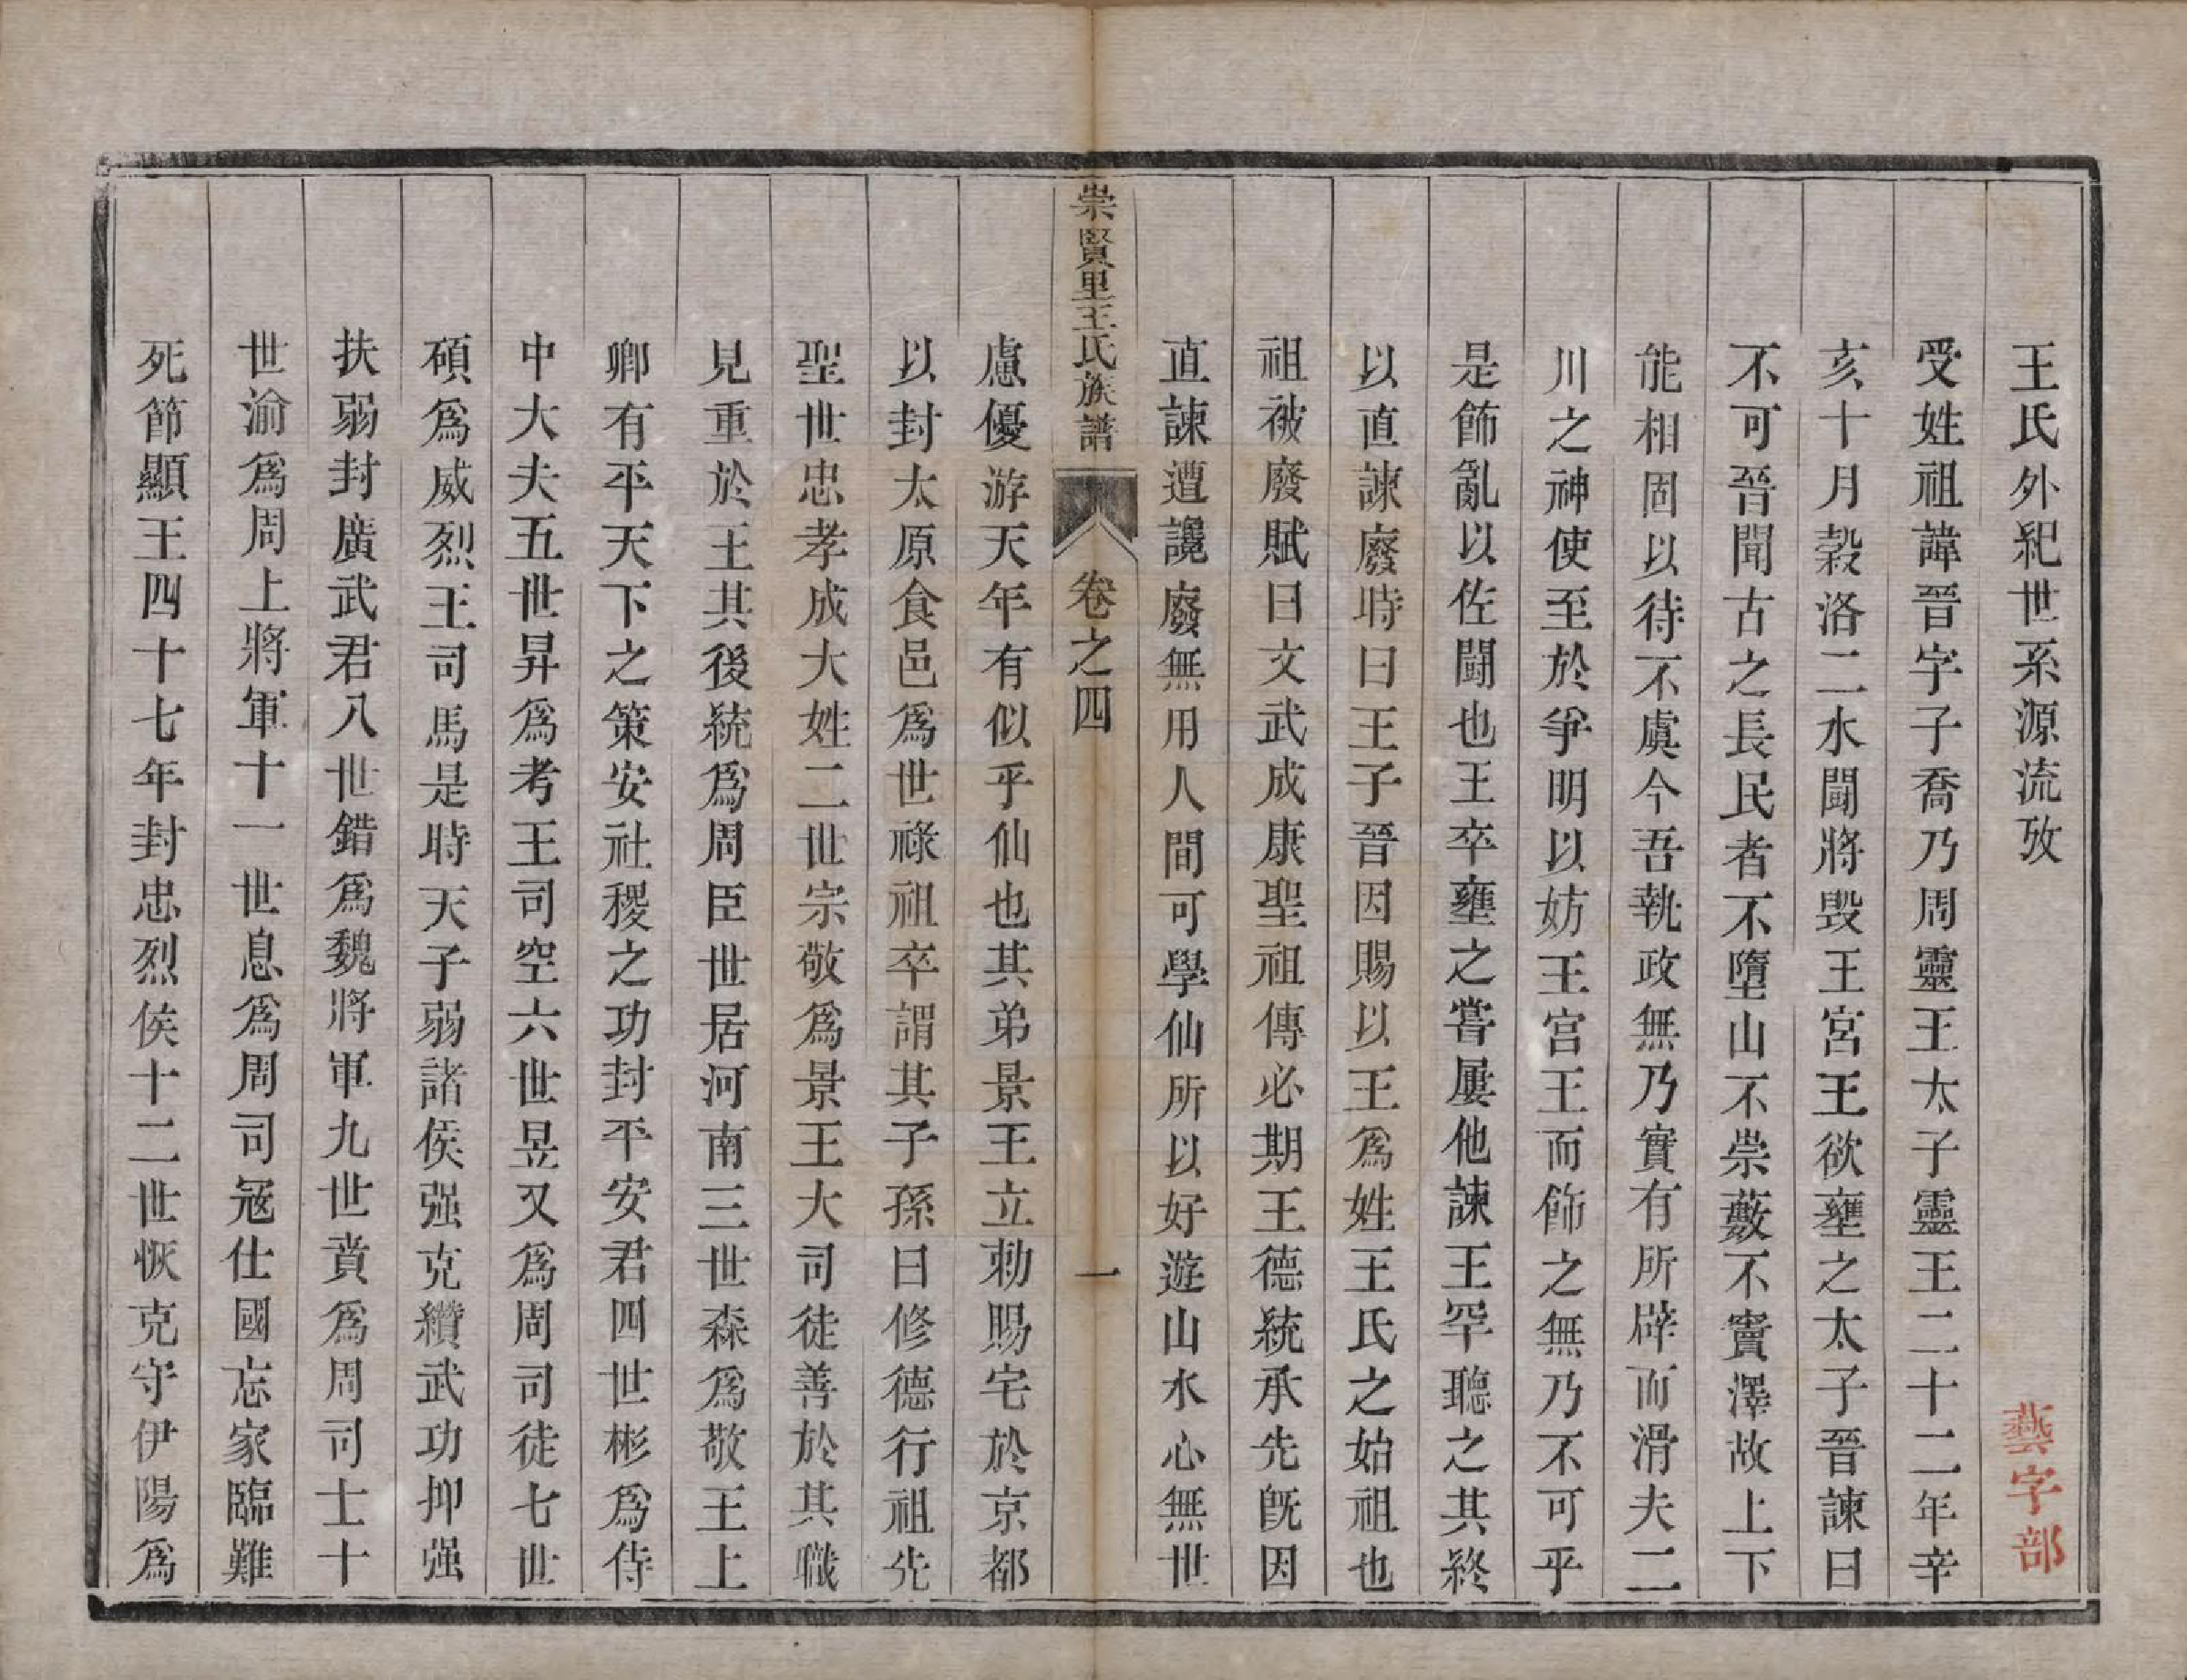 王氏外紀世系源流攷
藝字部
受姓祖諱晉字子喬乃周靈王太子靈王二十二年辛
亥十月穀洛二水鬬將毀王宮王欲壅之太子晉諫曰
不可晉聞古之長民者不墮山不崇藪不竇澤故上下
能相固以待不虞今吾執政無乃實有所辟而滑夫二
川之神使至於爭明以妨王宮王而飾之無乃不可乎
是飾亂以佐鬬也王卒壅之嘗屢他諫王罕聽之其終
以直諫廢時曰王子晉因賜以王爲姓王氏之始祖也
祖被廢賦曰文武成康聖祖傳必期王德統承先旣因
直諫遭讒廢無用人間可學仙所以好遊山水心無世
崇賢里王氏族譜
卷之四
一
慮優游天年有似乎仙也其弟景王立勅賜宅於京都
以封太原食邑爲世祿祖卒謂其子孫曰修德行祖先
聖世忠孝成大姓二世宗敬爲景王大司徒善於其職
見重於王其後統爲周臣世居河南三世森爲敬王上
卿有平天下之策安社稷之功封平安君四世彬爲侍
中大夫五世昇爲考王司空六世昱又爲周司徒七世
碩爲威烈王司馬是時天子弱諸侯强克纘武功抑强
扶弱封廣武君八世錯爲魏將軍九世賁爲周司士十
世渝爲周上將軍十一世息爲周司冦仕國忘家臨難
死節顯王四十七年封忠烈侯十二世恢克守伊陽爲